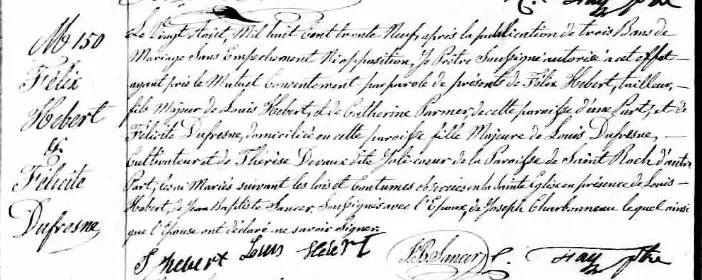 M 150
Félix
Hebert
&
Félicité
Dufresne
Le Vingt Août Mil huit Cent trente Neuf, après la publication de trois Bans de
Mariage Sans Empechement Ni opposition, Je Prêtre Soussigné autorisé à cet effet
ayant pris le Mutuel Consentement par parole de présents de Félix Hebert, tailleur,
fils Majeur de Louis Hebert, et de Catherine Parmer, de cette paroisse d'une Part, et de
Félicité Dufresne, domiciliée en cette paroisse fille Majeure de Louis Dufresne,
Cultivateur et de Thérèse Devaux dite Jolicoeur de la Paroisse de Saint Roch d'autre
Part, les ai Mariés suivant les lois et Coutumes observées en la Sainte Eglise en présence de Louis
Hebert, de Jean Baptiste Sancer, Soussignés avec l'Epoux, de Joseph Charbonneau lequel ainsi
que l'Epouse ont déclaré ne savoir signer.
f hebert Louis Hebert J.B. Sancer C. Hay ptre